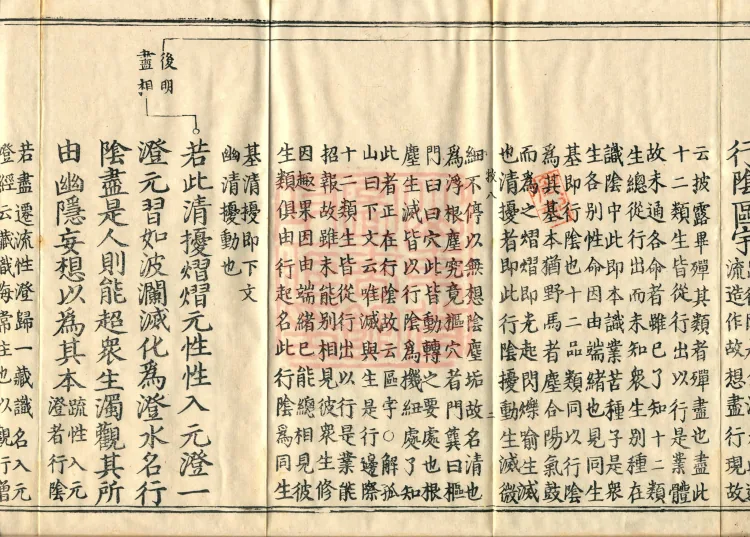 行陰區宇
流造作故想盡行現故
云披露畢殫其類者殫盡也盡此
十二類生皆從行出以行是業體
故未通各命者雖已了知十二類
生總從行出而未知衆生別種在
識陰中此即本識業苦種子是衆
生各別性命因由端緒也見同生
基即行陰也十二品類同以行陰
爲其基本猶野馬者塵合陽氣鼓
而爲之熠熠即光起閃爍喻生滅
也清擾者即此行陰擾動生滅微
細不停以無想陰塵垢故名清也
爲浮根塵究竟樞穴者門簨曰樞
門臼曰穴此皆動轉之要處也根
塵生滅皆以行陰爲機紐處了知
此者正在行陰故云區宇○解孤
山曰下文云唯滅與生是行邊際
十二類生皆從行出以行是業能
招報故雖未能別相見彼衆生修
因趣果因由端緒已能總相見彼
生類俱由行起名此行陰爲同生
基清擾即下文
幽清擾動也
後明
盡相
若此清擾熠熠元性性入元澄一
澄元習如波瀾滅化爲澄水名行
陰盡是人則能超衆生濁觀其所
由幽隱妄想以爲其本
疏性入元
澄者行陰
若盡遷流性澄歸一藏識名入元
澄經云藏識海常住也以觀行增